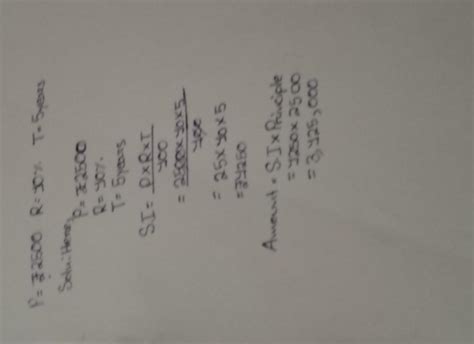 P = ₹2500 R = 10% T = 5years
Solu: Here,
P = ₹2500
R = 10%
T = 5years
S.I = P×R×T
100
= 2500×10×5
100
= 25×10×5
= ₹1250
Amount = S.I × Principle
= 1250×2500
= 3,125,000